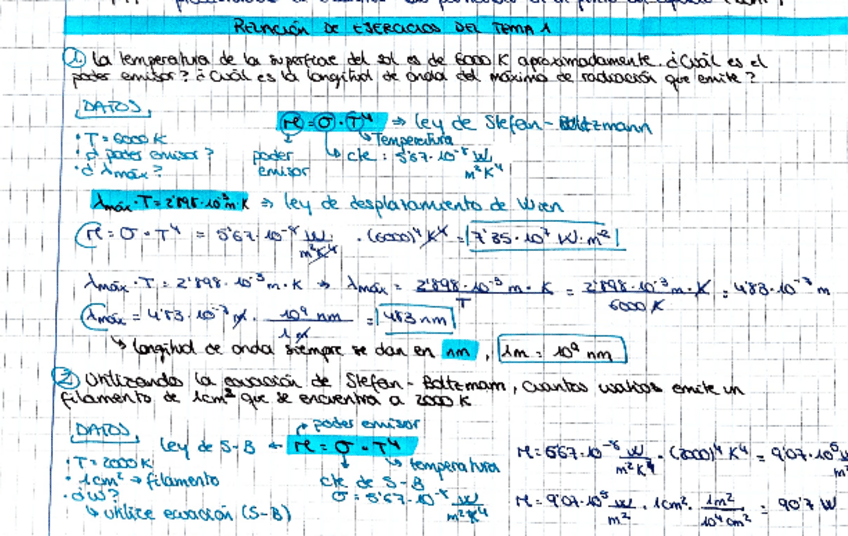 RELACIÓN DE EJERCICIOS DEL TEMA 1
① La temperatura de la superficie del sol es de 6000 K aproximadamente. ¿Cuál es el
poder emisor? ¿Cuál es la longitud de onda del máximo de radiación que emite?
DATOS
· T = 6000 K
· ¿ poder emisor?
· ¿ λmáx?
M = σ · T⁴ ⇒ Ley de Stefan - Boltzmann
poder emisor
Temperatura
cte : 5'67 · 10⁻⁸ W/m²K⁴
λmáx · T = 2'898 · 10⁻³ m · K ⇒ ley de desplazamiento de Wien
M = σ · T⁴ = 5'67 · 10⁻⁸ W/m²K⁴ · (6000)⁴ K⁴ = 7'35 · 10⁷ W · m⁻²
λmáx · T = 2'898 · 10⁻³ m · K → λmáx = 2'898 · 10⁻³ m · K / T = 2'898 · 10⁻³ m · K / 6000 K = 4'83 · 10⁻⁷ m
λmáx = 4'83 · 10⁻⁷ m · 10⁹ nm / 1 m = 483 nm
↳ longitud de onda siempre se dan en nm , 1m = 10⁹ nm
② Utilizando la ecuación de Stefan - Boltzmam, cuantos watios emite un
filamento de 1cm² que se encuentra a 2000 K
DATOS
· T = 2000 K
· 1cm² → filamento
· ¿W?
↳ utilice ecuación (S-B)
poder emisor
ley de S-B ← M = σ · T⁴
temperatura
cte de S-B
σ = 5'67 · 10⁻⁸ W/m²K⁴
M = 5'67 · 10⁻⁸ W/m²K⁴ · (2000)⁴ K⁴ = 9'07 · 10⁵ W/m²
M = 9'07 · 10⁵ W/m² · 1cm² · 1m²/10⁴cm² = 90'7 W